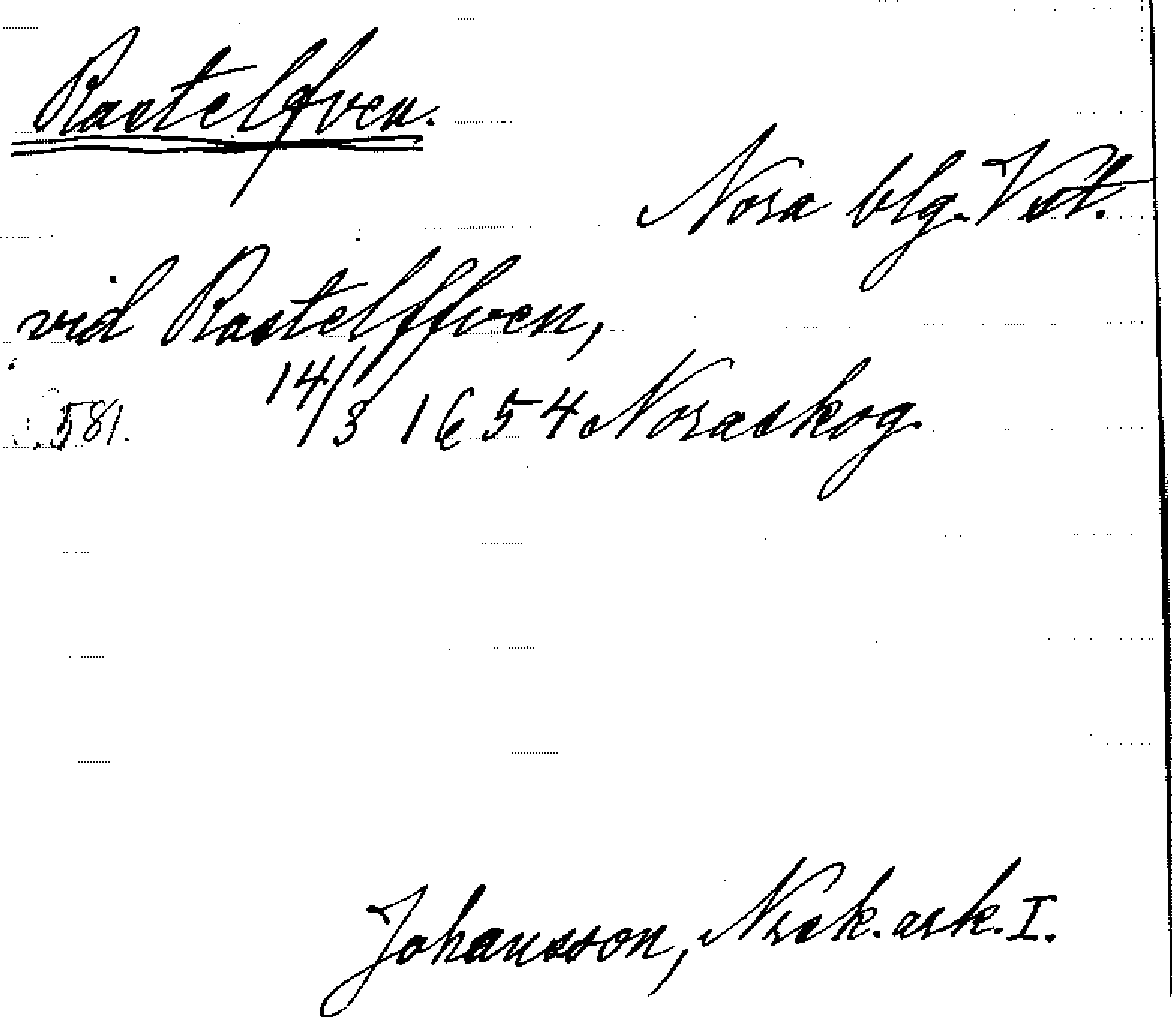 Rastelfven.
Nora blg. Vstm.
vid Rastelffven,
S. 581. 14/3 1654 Noraskog.
Johansson, Nrsk. ark. I.